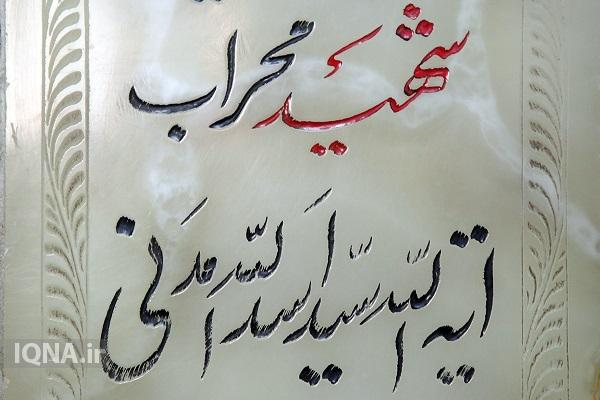 شهید محراب
آیة الله سید اسدالله مدنی
IQNA.ir